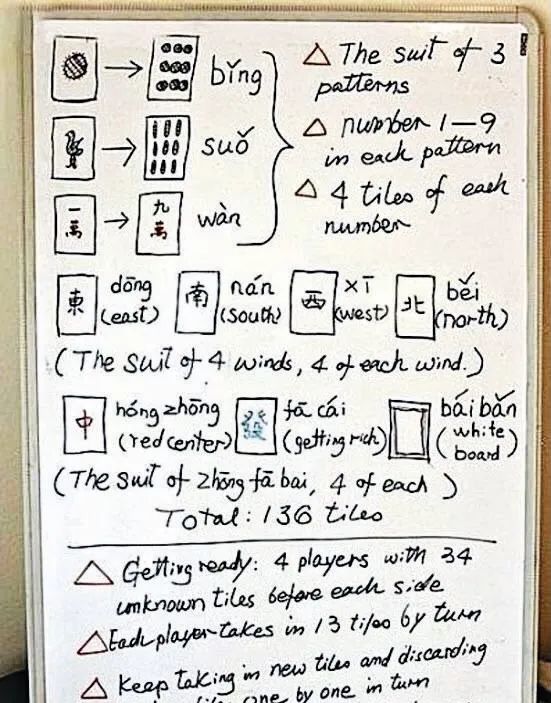 bǐng
suǒ
一萬
九萬
wàn
The suit of 3
patterns
number 1-9
in each pattern
4 tiles of each
number
東
dōng
(east)
南
nán
(south)
西
xī
(west)
北
běi
(north)
(The suit of 4 winds, 4 of each wind.)
中
hóng zhōng
(red center)
發
fā cái
(getting rich)
bái bǎn
(white
board)
(The suit of zhōng fā bai, 4 of each)
Total: 136 tiles
Getting ready: 4 players with 34
unknown tiles before each side
Each player takes in 13 tiles by turn
Keep taking in new tiles and discarding
one by one in turn